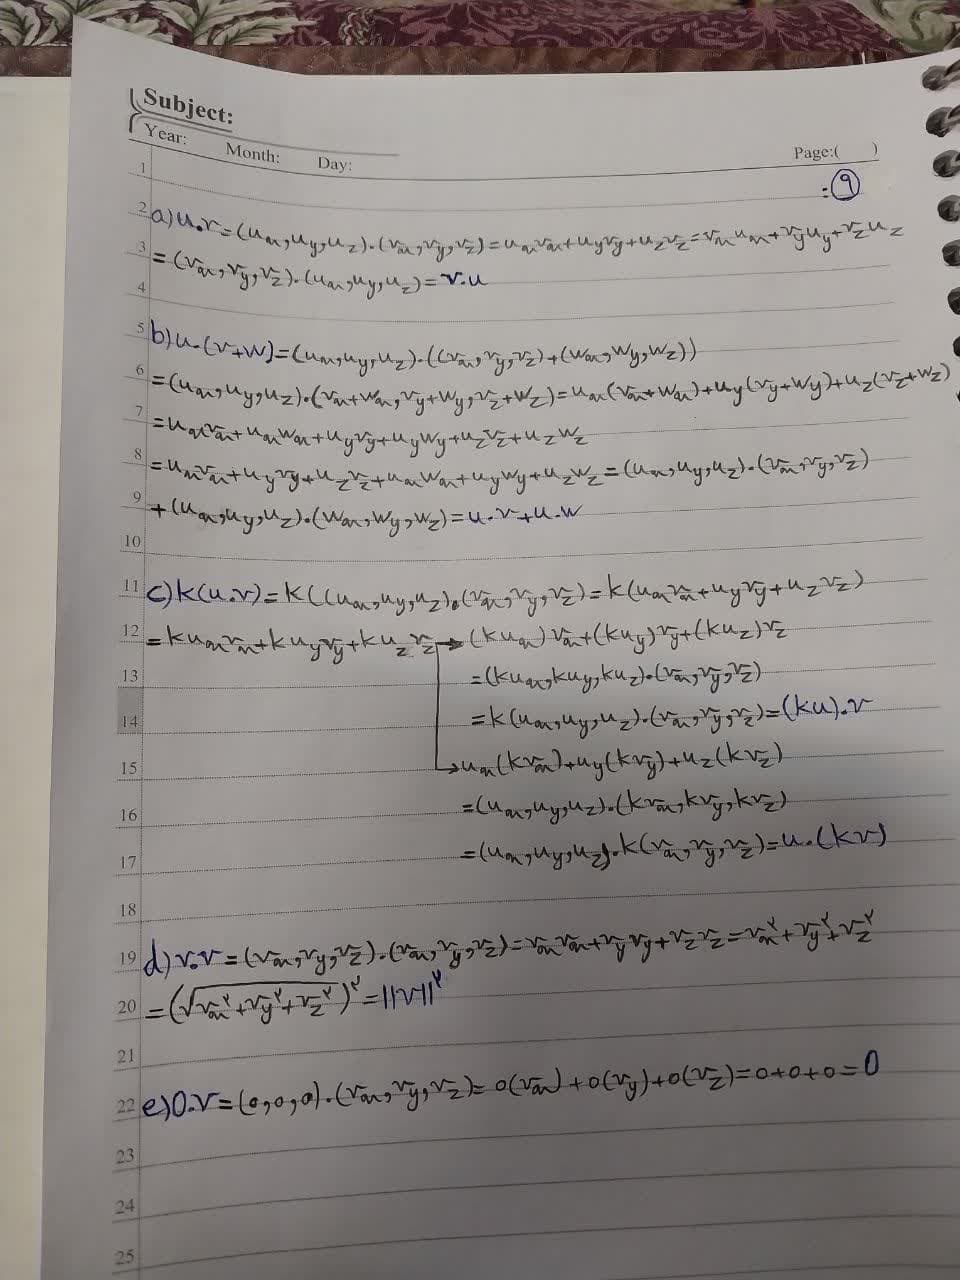 Subject:
Year: Month: Day: Page:( )
1
:⑨
2 a) u.v=(uₓ,u_y,u_z).(vₓ,v_y,v_z)=uₓvₓ+u_yv_y+u_zv_z=vₓuₓ+v_yu_y+v_zu_z
3 =(vₓ,v_y,v_z).(uₓ,u_y,u_z)=v.u
4
5 b) u.(v+w)=(uₓ,u_y,u_z).((vₓ,v_y,v_z)+(wₓ,w_y,w_z))
6 =(uₓ,u_y,u_z).(vₓ+wₓ,v_y+w_y,v_z+w_z)=uₓ(vₓ+wₓ)+u_y(v_y+w_y)+u_z(v_z+w_z)
7 =uₓvₓ+uₓwₓ+u_yv_y+u_yw_y+u_zv_z+u_zw_z
8 =uₓvₓ+u_yv_y+u_zv_z+uₓwₓ+u_yw_y+u_zw_z=(uₓ,u_y,u_z).(vₓ,v_y,v_z)
9 +(uₓ,u_y,u_z).(wₓ,w_y,w_z)=u.v+u.w
10
11 c) k(u.v)=k((uₓ,u_y,u_z).(vₓ,v_y,v_z)=k(uₓvₓ+u_yv_y+u_zv_z)
12 =kuₓvₓ+ku_yv_y+ku_zv_z→(kuₓ)vₓ+(ku_y)v_y+(ku_z)v_z
13 =(kuₓ,ku_y,ku_z).(vₓ,v_y,v_z)
14 =k(uₓ,u_y,u_z).(vₓ,v_y,v_z)=(ku).v
15 →uₓ(kvₓ)+u_y(kv_y)+u_z(kv_z)
16 =(uₓ,u_y,u_z).(kvₓ,kv_y,kv_z)
17 =(uₓ,u_y,u_z).k(vₓ,v_y,v_z)=u.(kv)
18
19 d) v.v=(vₓ,v_y,v_z).(vₓ,v_y,v_z)=vₓvₓ+v_yv_y+v_zv_z=vₓ^۲+v_y^۲+v_z^۲
20 =(√(vₓ^۲+v_y^۲+v_z^۲))^۲=||v||^۲
21
22 e) 0.v=(0,0,0).(vₓ,v_y,v_z)=0(vₓ)+0(v_y)+0(v_z)=0+0+0=0
23
24
25